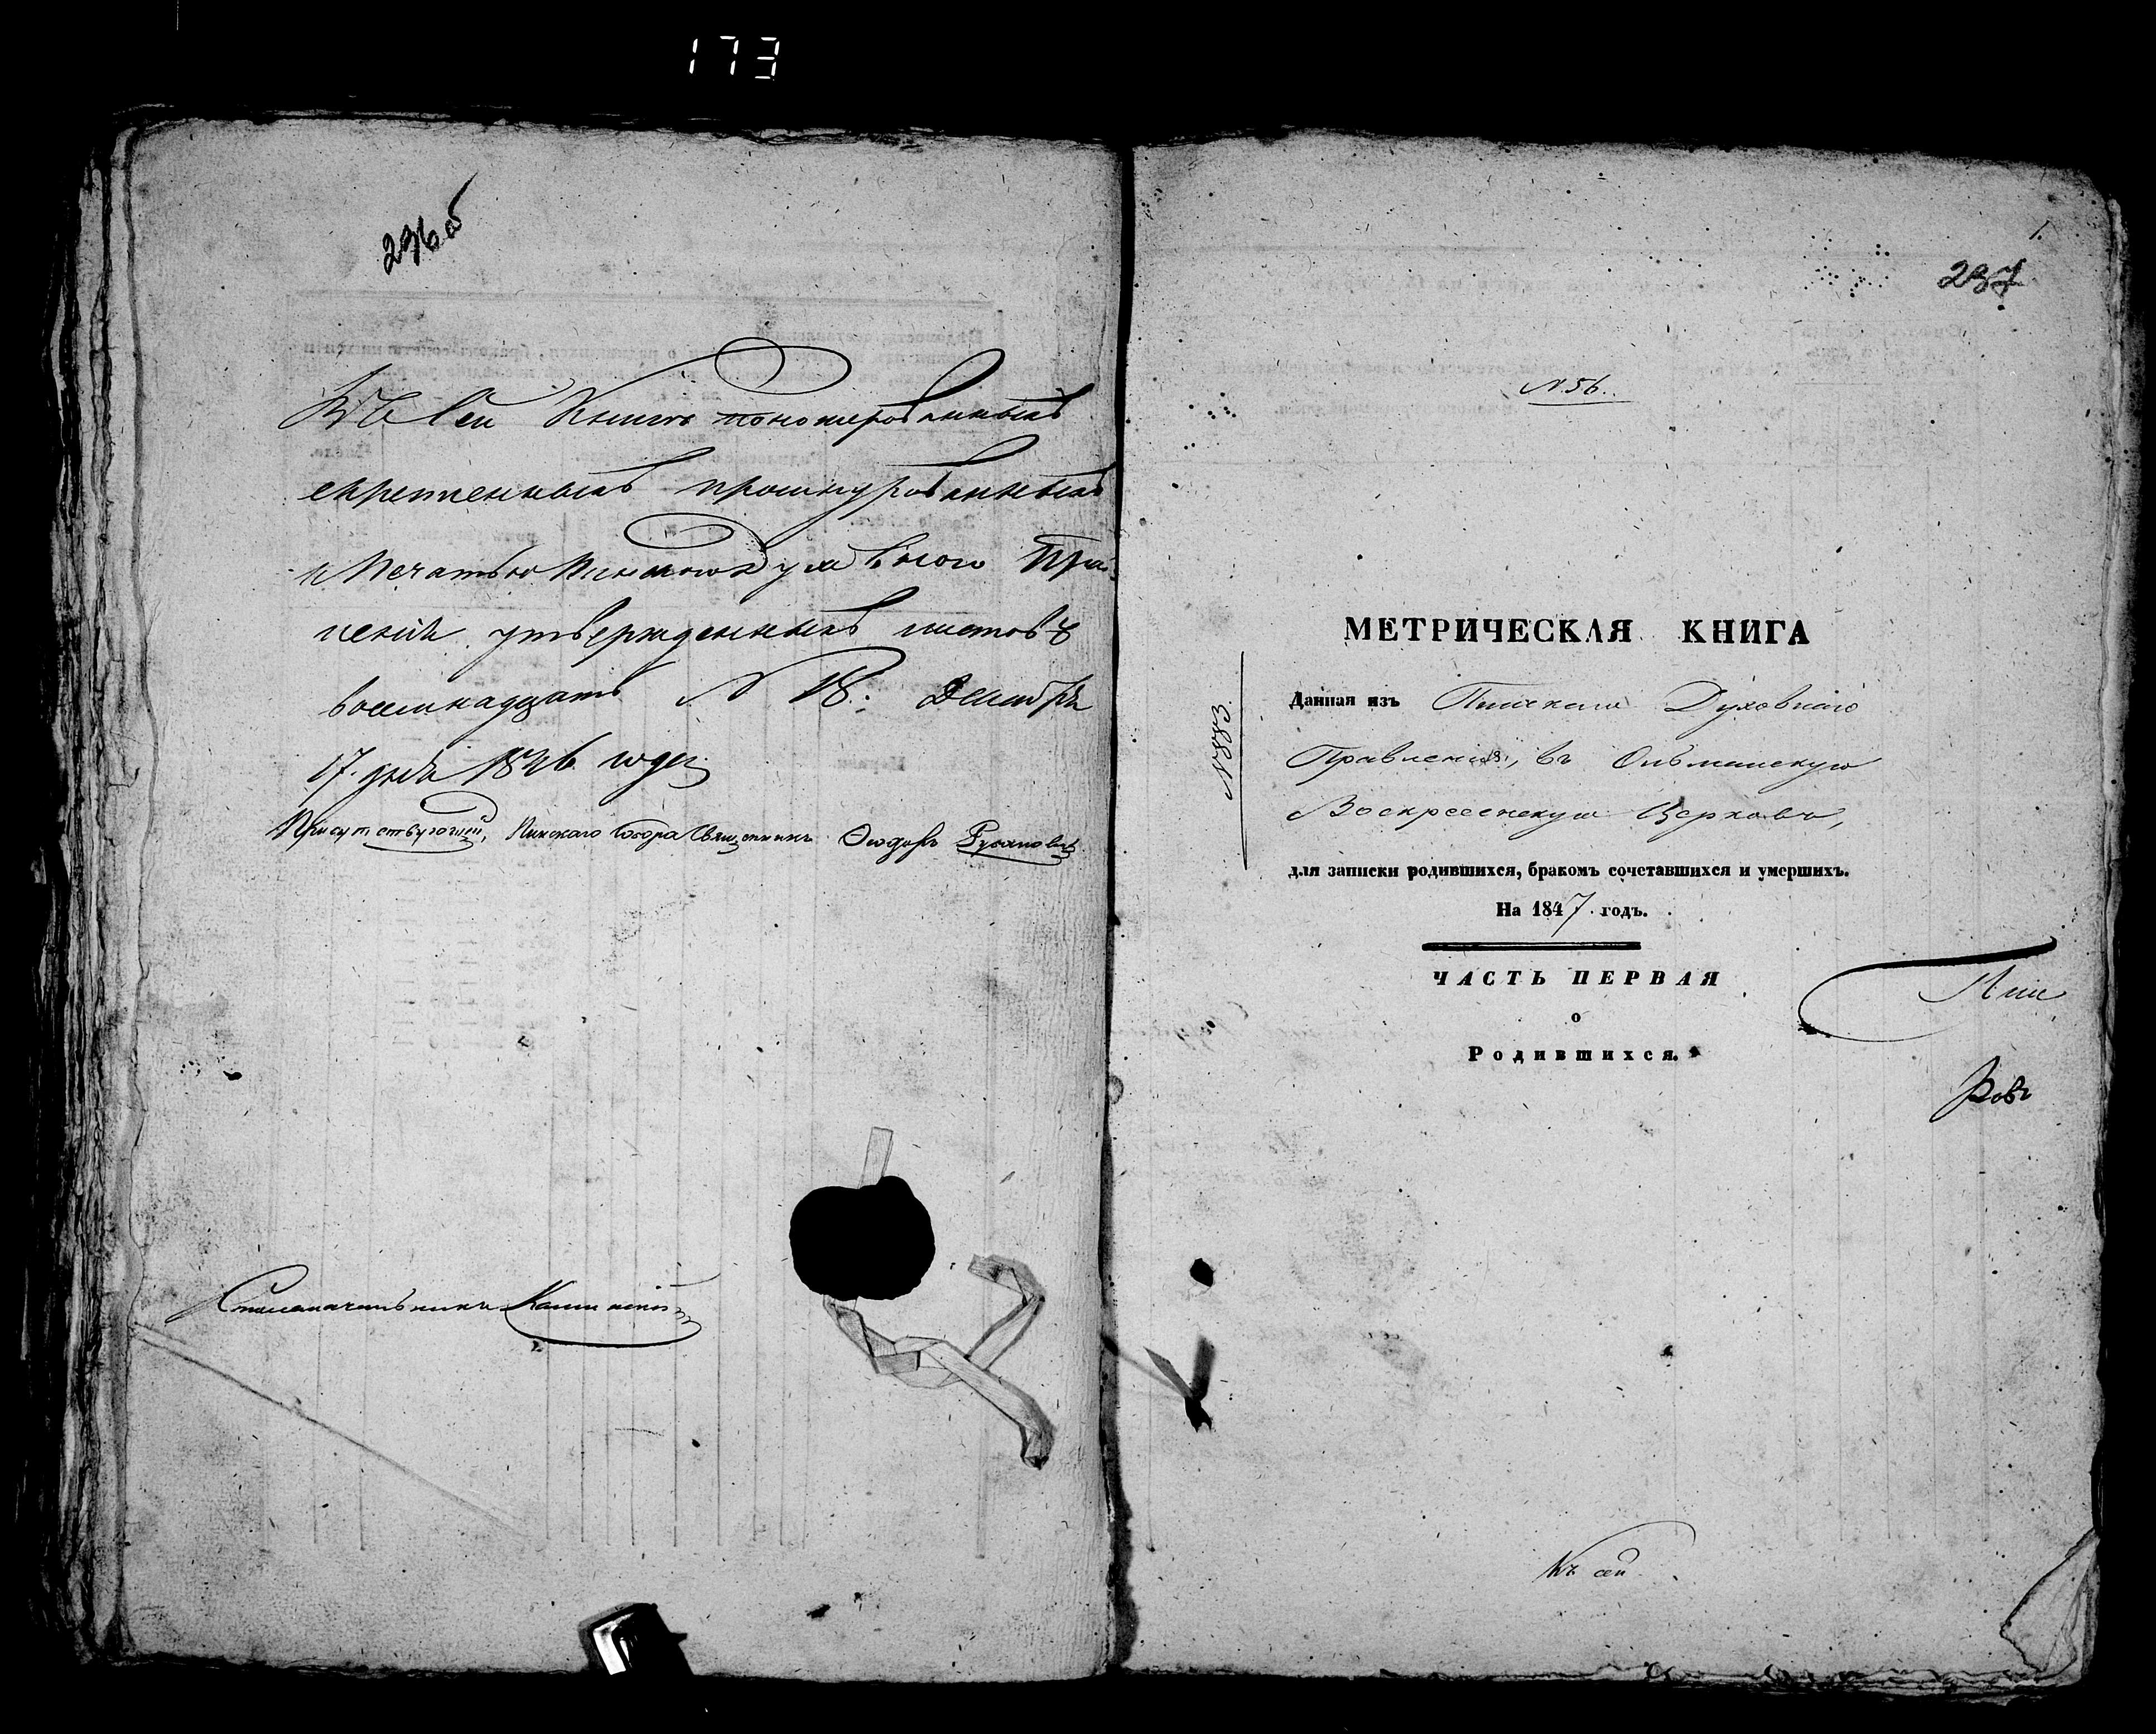 173
236 об
Въ сей Книге пономерованныхъ
скрепленныхъ прошнурованныхъ
и Печатью Пинскаго Духовного Прав-
ленія утвержденныхъ листовъ
восемнадцать N 18: Декабря
17. дня 1846 года
Присутствующій, Пинскаго Собора Священникъ Ѳеодоръ
Столоначальникъ
1.
237
N 56.
МЕТРИЧЕСКАЯ КНИГА
N 883.
Данная изъ Пинскаго Духовнаго
Правленія, въ Ольманскую
Воскресенскую Церковь,
для записки родившихся, бракомъ сочетавшихся и умершихъ.
На 1847 годъ.
ЧАСТЬ ПЕРВАЯ
о
Родившихся.
Къ сей